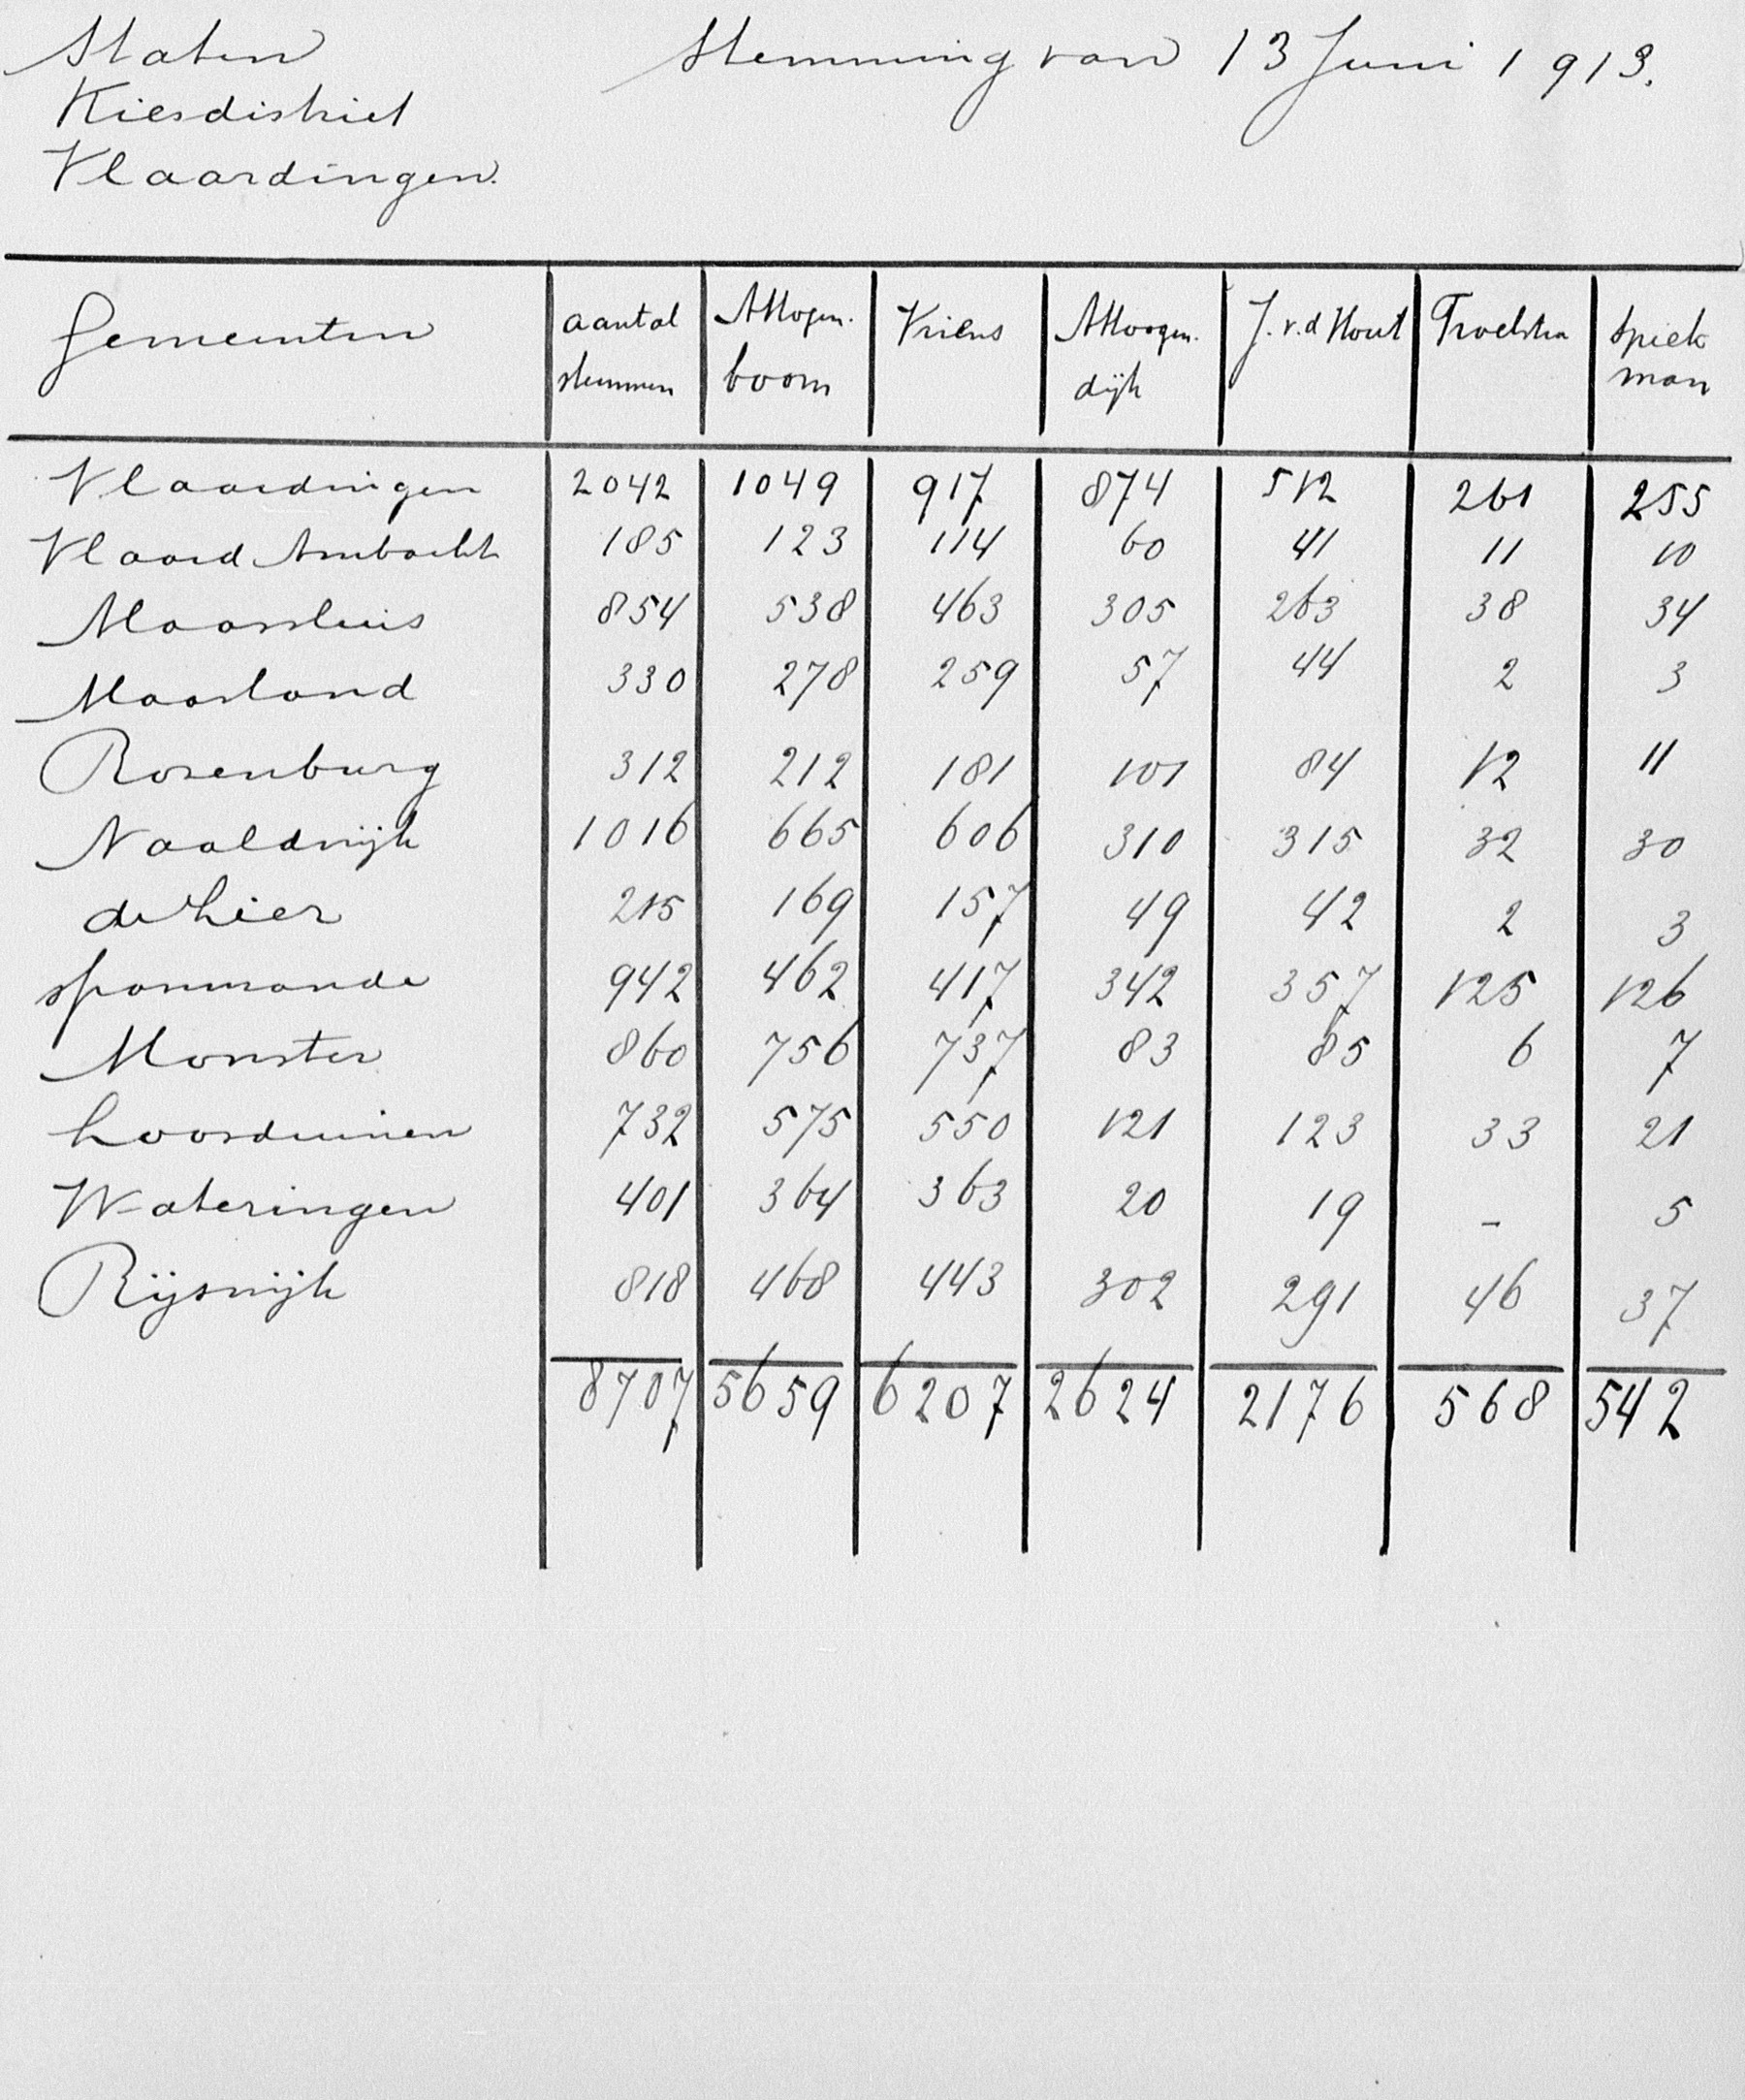 Staten Stemming van 13 Juni 1913.
Kiesdistrict
Vlaardingen.
Gemeenten aantal stemmen A Hogen. boom Vriens A Hoogen. dijk J. v. d Hout Troelstra Spiek man
Vlaardingen 2042 1049 917 874 512 261 255
Vlaard Ambacht 185 123 114 60 41 11 10
Maassluis 854 538 463 305 263 38 34
Maasland 330 278 259 57 44 2 3
Rosenburg 312 212 181 101 84 12 11
Naaldwijk 1016 665 606 310 315 32 30
de Lier 215 169 157 49 42 2 3
's Gravenzande 942 462 417 342 357 125 126
Monster 860 756 737 83 85 6 7
Loosduinen 732 575 550 121 123 33 21
Wateringen 401 364 363 20 19 - 5
Rijswijk 818 468 443 302 291 46 37
8707 5659 6207 2624 2176 568 542